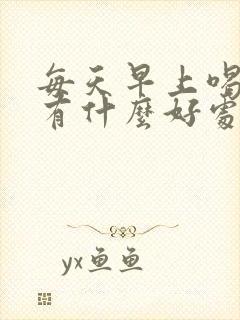 每天早上喝
有什麼好處
yx鱼鱼